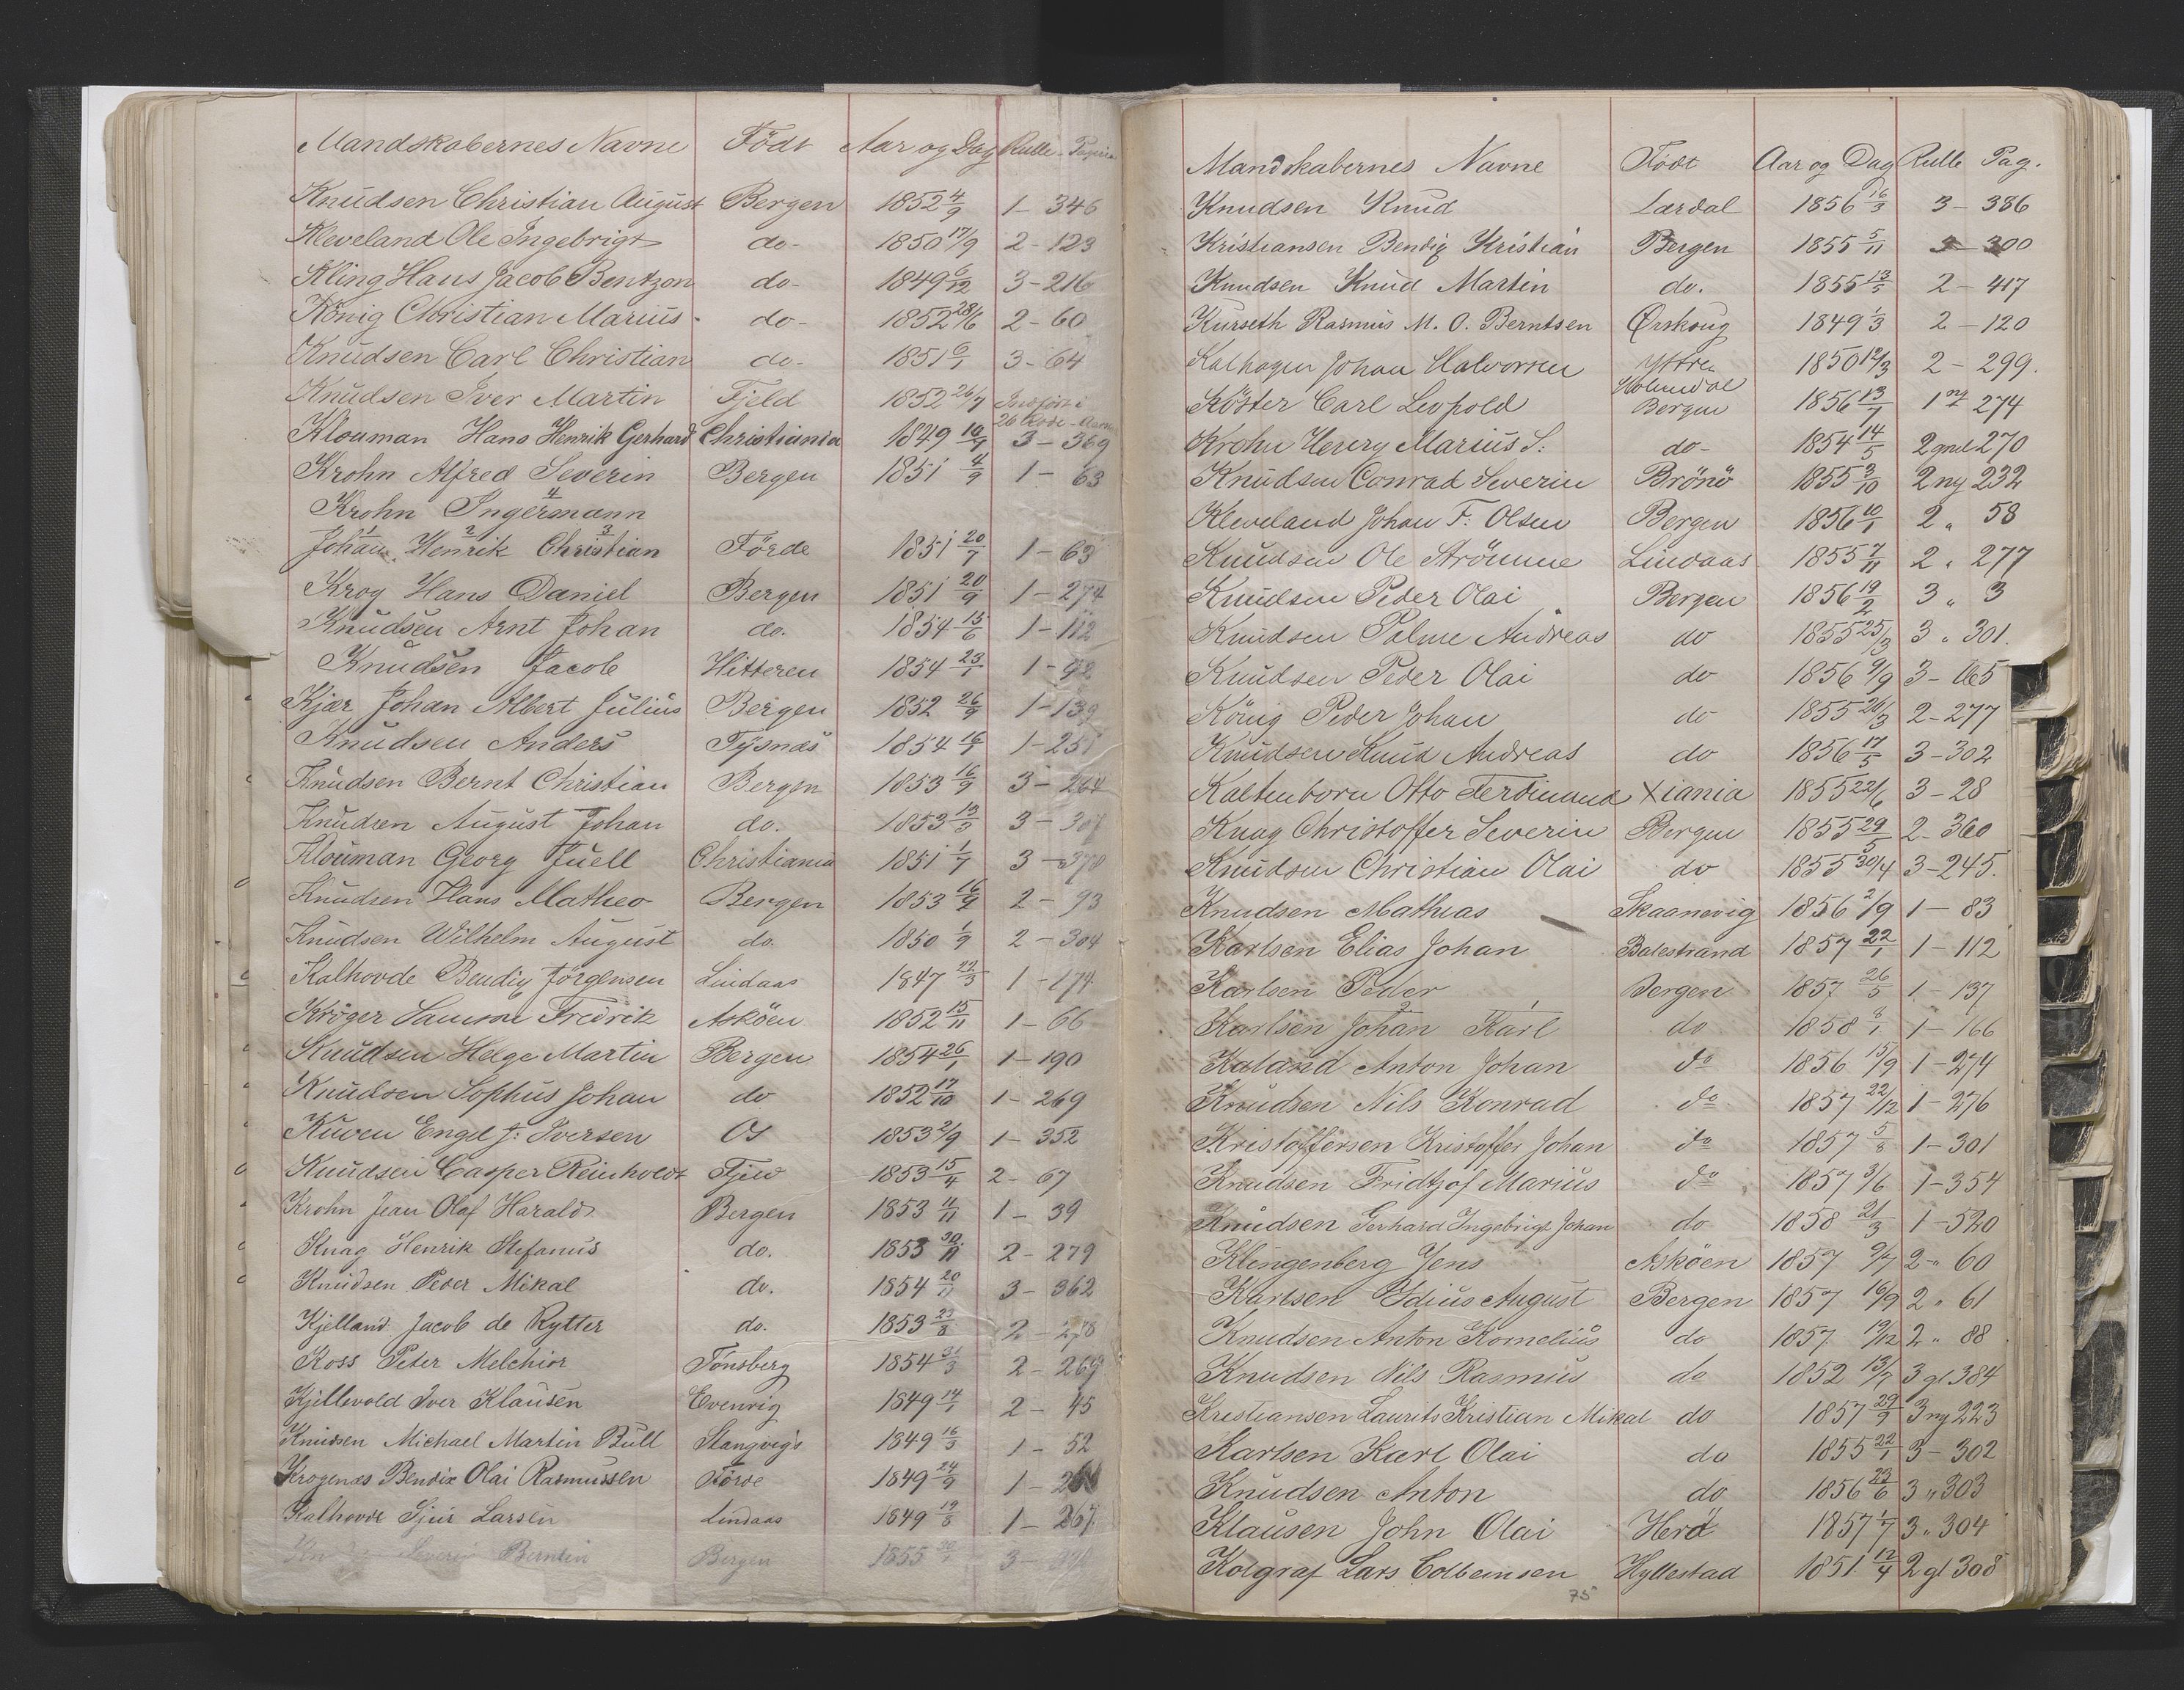 Mandskabernes Navne Födt Aar og Dag Rulle - Pagina
Knudsen Christian August Bergen 1852 4/9 1 - 346
Kleveland Ole Ingebrigt do - 1850 17/9 2 - 123
Kling Hans Jacob Bentzon do - 1849 6/12 3 - 216
König Christian Marius do - 1852 28/6 2 - 60
Knudsen Carl Christian do - 1851 6/1 3 - 64
Knudsen Iver Martin Fjeld 1852 26/7 Indført i
26
Klouman Hans Henrik Gerhard Christiania 1849 10/9 3 - 369
Krohn Alfred Severin Bergen 1851 4/9 1 - 63
4
Krohn Ingermann
1 2 3
Johan Henrik Christian Förde 1851 20/7 1 - 63
Krog Hans Daniel Bergen 1851 20/9 1 - 274
Knudsen Arnt Johan do. 1854 15/6 1 - 112
Knudsen Jacob Hitteren 1854 23/1 1 - 92
Kjær Johan Albert Julius Bergen 1852 26/9 1 - 139
Knudsen Anders Tysnæs 1854 16/1 1 - 251
Knudsen Bernt Christian Bergen 1853 16/9 3 - 264
Knudsen August Johan do. 1853 13/3 3 - 307
Klouman Georg Juell Christiania 1851 1/7 3 - 370
Knudsen Hans Matheo Bergen 1853 16/9 2 - 93
Knudsen Wilhelm August do. 1850 1/9 2 - 304
Kalhovde Bendix Jørgensen Lindaas 1847 22/3 1 - 174
Kröger Samson Fredrik Asköen 1852 15/11 1 - 66
Knudsen Helge Martin Bergen 1854 26/1 1 - 190
Knudsen Sophus Johan do 1852 17/10 1 - 269
Kuven Engel J: Iversen Os 1853 2/9 1 - 352
Knudsen Casper Reinholdt Fjeld 1853 15/4 2 - 67
Krohn Jean Olaf Harald Bergen 1853 11/11 1 - 39
Knag Henrik Stefanus do. 1853 30/11 2 - 279
Knudsen Peder Mikal do. 1854 20/11 3 - 362
Kjelland Jacob de Rytter do. 1853 23/8 2 - 278
Koss Peter Melchior Tønsberg 1854 31/3 2 - 269
Kjellevold Iver Klausen Evenvig 1849 14/1 2 - 45
Knudsen Michael Martin Bull Stangvigs 1849 16/3 1 - 52
Krogenæs Bendix Olai Rasmussen Förde 1849 24/9 1 -
Kalhovde Sjur Larsen Lindaas 1849 19/8 1 - 267
Severin Berntin Bergen 1855 3 -
Mandskabernes Navne Födt Aar og Dag Rulle Pag.
Knudsen Knud Lærdal 1856 16/3 3 - 386
Kristiansen Bendix Kristian Bergen 1855 5/11 3 - 300
Knudsen Knud Martin do. 1855 13/5 2 - 417
Kurseth Rasmus M. O. Berntsen Ørskoug 1849 1/3 2 - 120
Kalhagen Johan Halvorsen Yttre Holmedal 1850 19/3 2 - 299.
Köster Carl Leopold Bergen 1856 13/7 1 ny 274
Krohn Henry Marius S. do - 1854 14/5 2 gml 270
Knudsen Conrad Severin Brönö 1855 3/10 2 ny 232
Kleveland Johan F: Olsen Bergen 1856 10/1 2 " 58
Knudsen Ole Strömme Lindaas 1855 7/11 2 " 277
Knudsen Peder Olai Bergen 1856 19/2 3 " 3
Knudsen Palme Andreas do 1855 25/3 3 " 301.
Knudsen Peder Olai do 1856 9/9 3 - 165
König Peder Johan do 1855 26/3 2 - 277
Knudsen Knud Andreas do 1856 17/5 3 - 302
Kaltenborn Otto Ferdinand Xiania 1855 22/6 3 - 28
Knag Christoffer Severin Bergen 1855 29/5 2 - 360
Knudsen Christian Olai do 1855 30/4 3 - 245.
Knudsen Mathias Skaanevig 1856 2/9 1 - 83
Karlsen Elias Johan Balestrand 1857 22/1 1 - 112
Karlsen Peder Bergen 1857 26/5 1 - 137
2 1
Karlsen Johan Karl do 1858 8/1 1 - 166
Kaland Anton Johan do 1856 15/9 1 - 274
Knudsen Nils Konrad do 1857 22/12 1 - 276
Kristoffersen Kristoffer Johan do 1857 5/8 1 - 301
Knudsen Fridtjof Marius do 1857 3/6 1 - 354
Knudsen Gerhard Ingebrigt Johan do 1858 21/3 1 - 520
Klingenberg Jens Asköen 1857 9/7 2 - " 60
Karlsen Edius August Bergen 1857 16/9 2 " 61
Knudsen Anton Kornelius do 1857 19/12 2 " 88
Knudsen Nils Rasmus do 1852 13/7 3 gl 384
Kristiansen Laurits Kristian Mikal do 1857 29/9 3 ny 223
Karlsen Karl Olai do 1855 22/1 3 - 302
Knudsen Anton do 1856 23/6 3 " 303
Klausen John Olai Herö 1857 1/7 3 " 304
Kolgraf Lars Colbeinsen Hyllestad 1851 12/4 2 gl 308
75